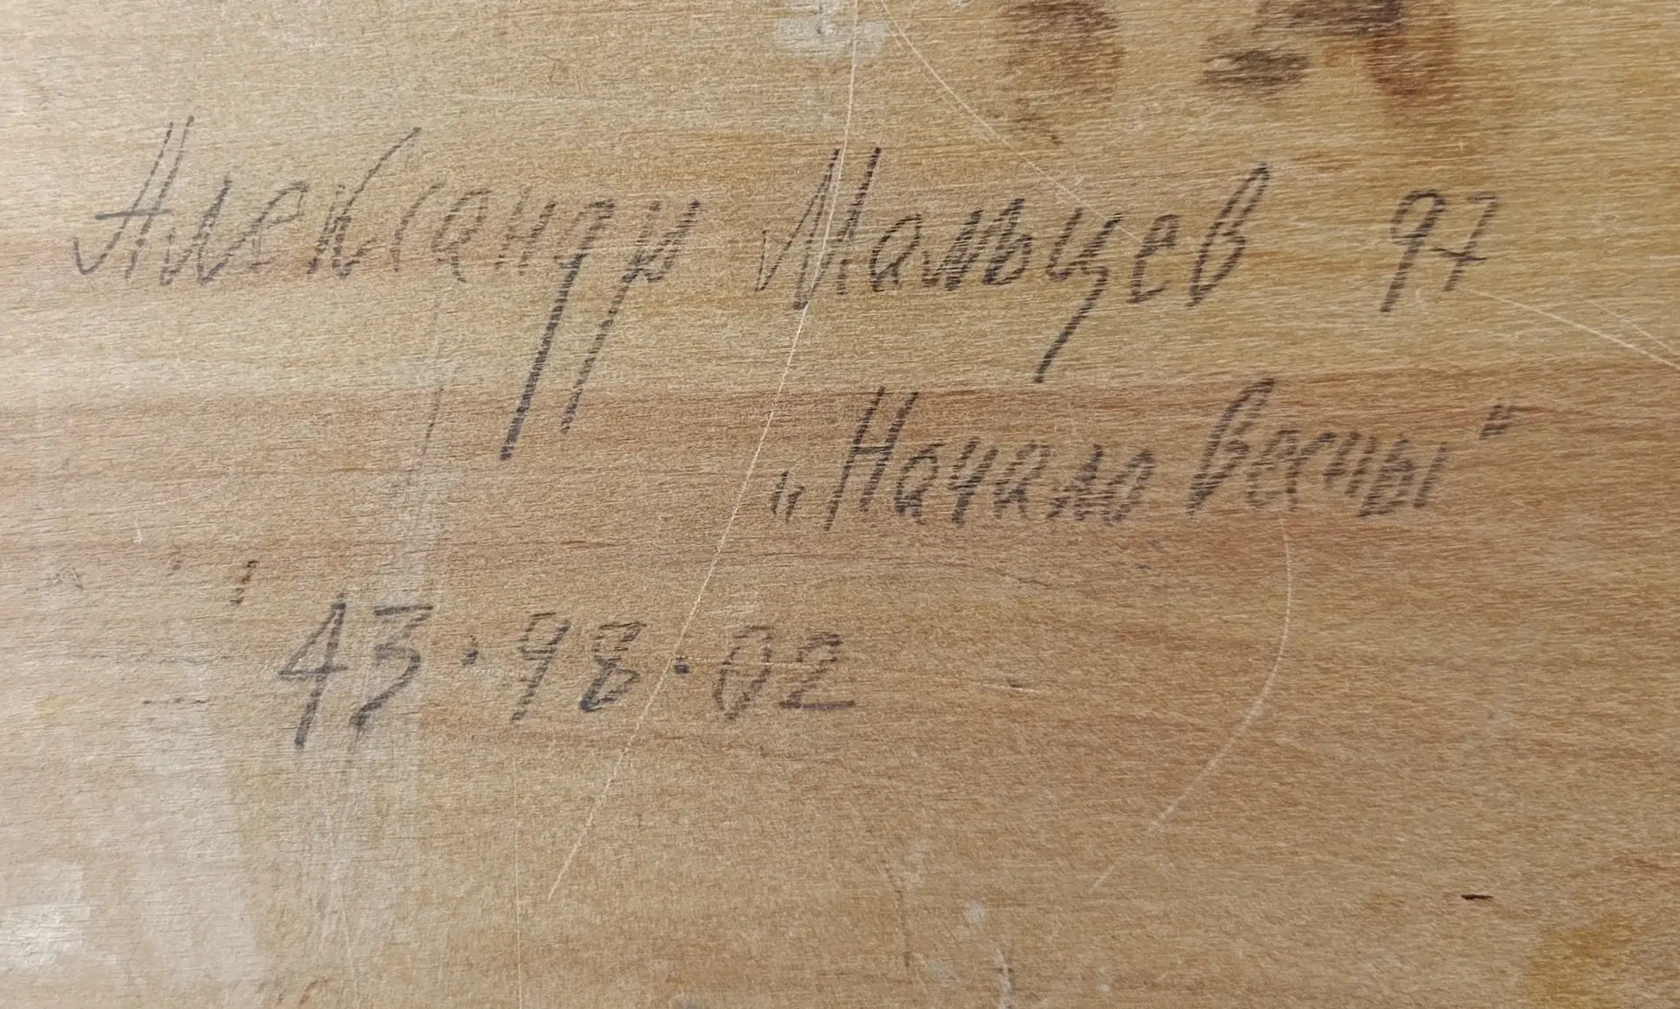 Александр Мальцев 97
„Начало Весны“
43·98·02